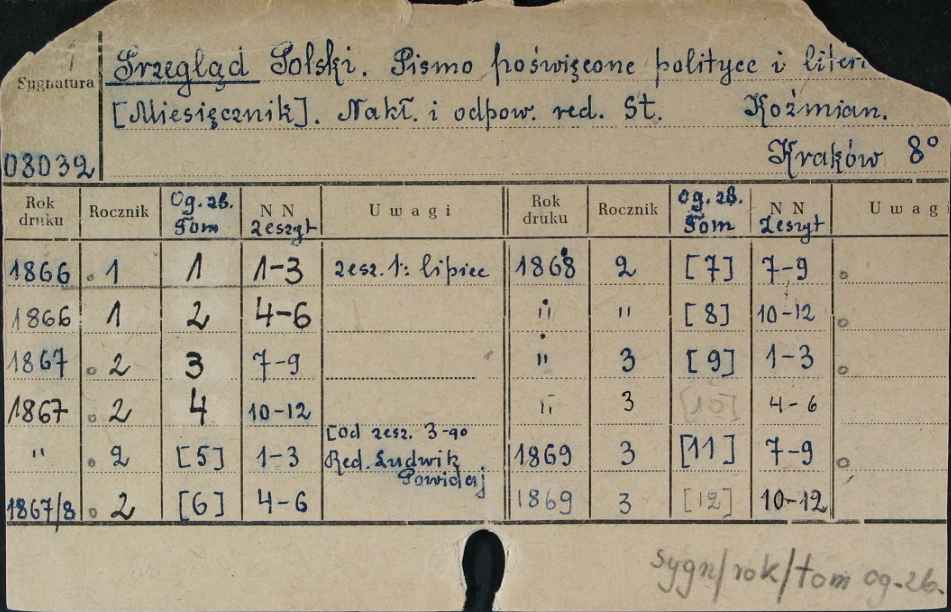 Sygnatura
Przegląd Polski. Pismo poświęcone polityce i liter
[Miesięcznik]. Nakł. i odpow. red. St. Koźmian.
08032 Kraków 8°
Rok druku Rocznik Og. zb. Tom NN Zeszyt Uwagi Rok druku Rocznik Og. zb. Tom NN Zeszyt Uwag
1866 1 1 1-3 zesz. 1: lipiec 1868 2 [7] 7-9
1866 1 2 4-6 " " [8] 10-12
1867 2 3 7-9 " 3 [9] 1-3
1867 2 4 10-12 " 3 [10] 4-6
" 2 [5] 1-3 [Od zesz. 3-go Red. Ludwik Powidaj 1869 3 [11] 7-9
1867/8 2 [6] 4-6 1869 3 [12] 10-12
sygn/rok/tom og-zb.